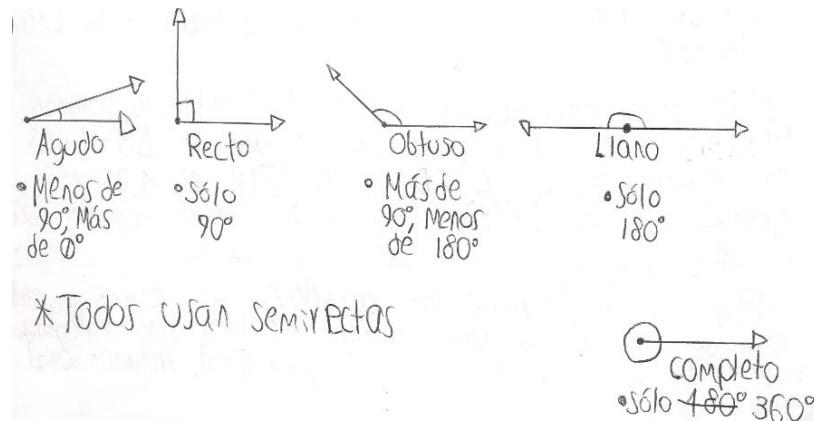 Agudo
• Menos de
90°, Más
de 0°
Recto
• Sólo
90°
Obtuso
• Más de
90°, Menos
de 180°
Llano
• Sólo
180°
* Todos usan semirrectas
Completo
• Sólo 480° 360°